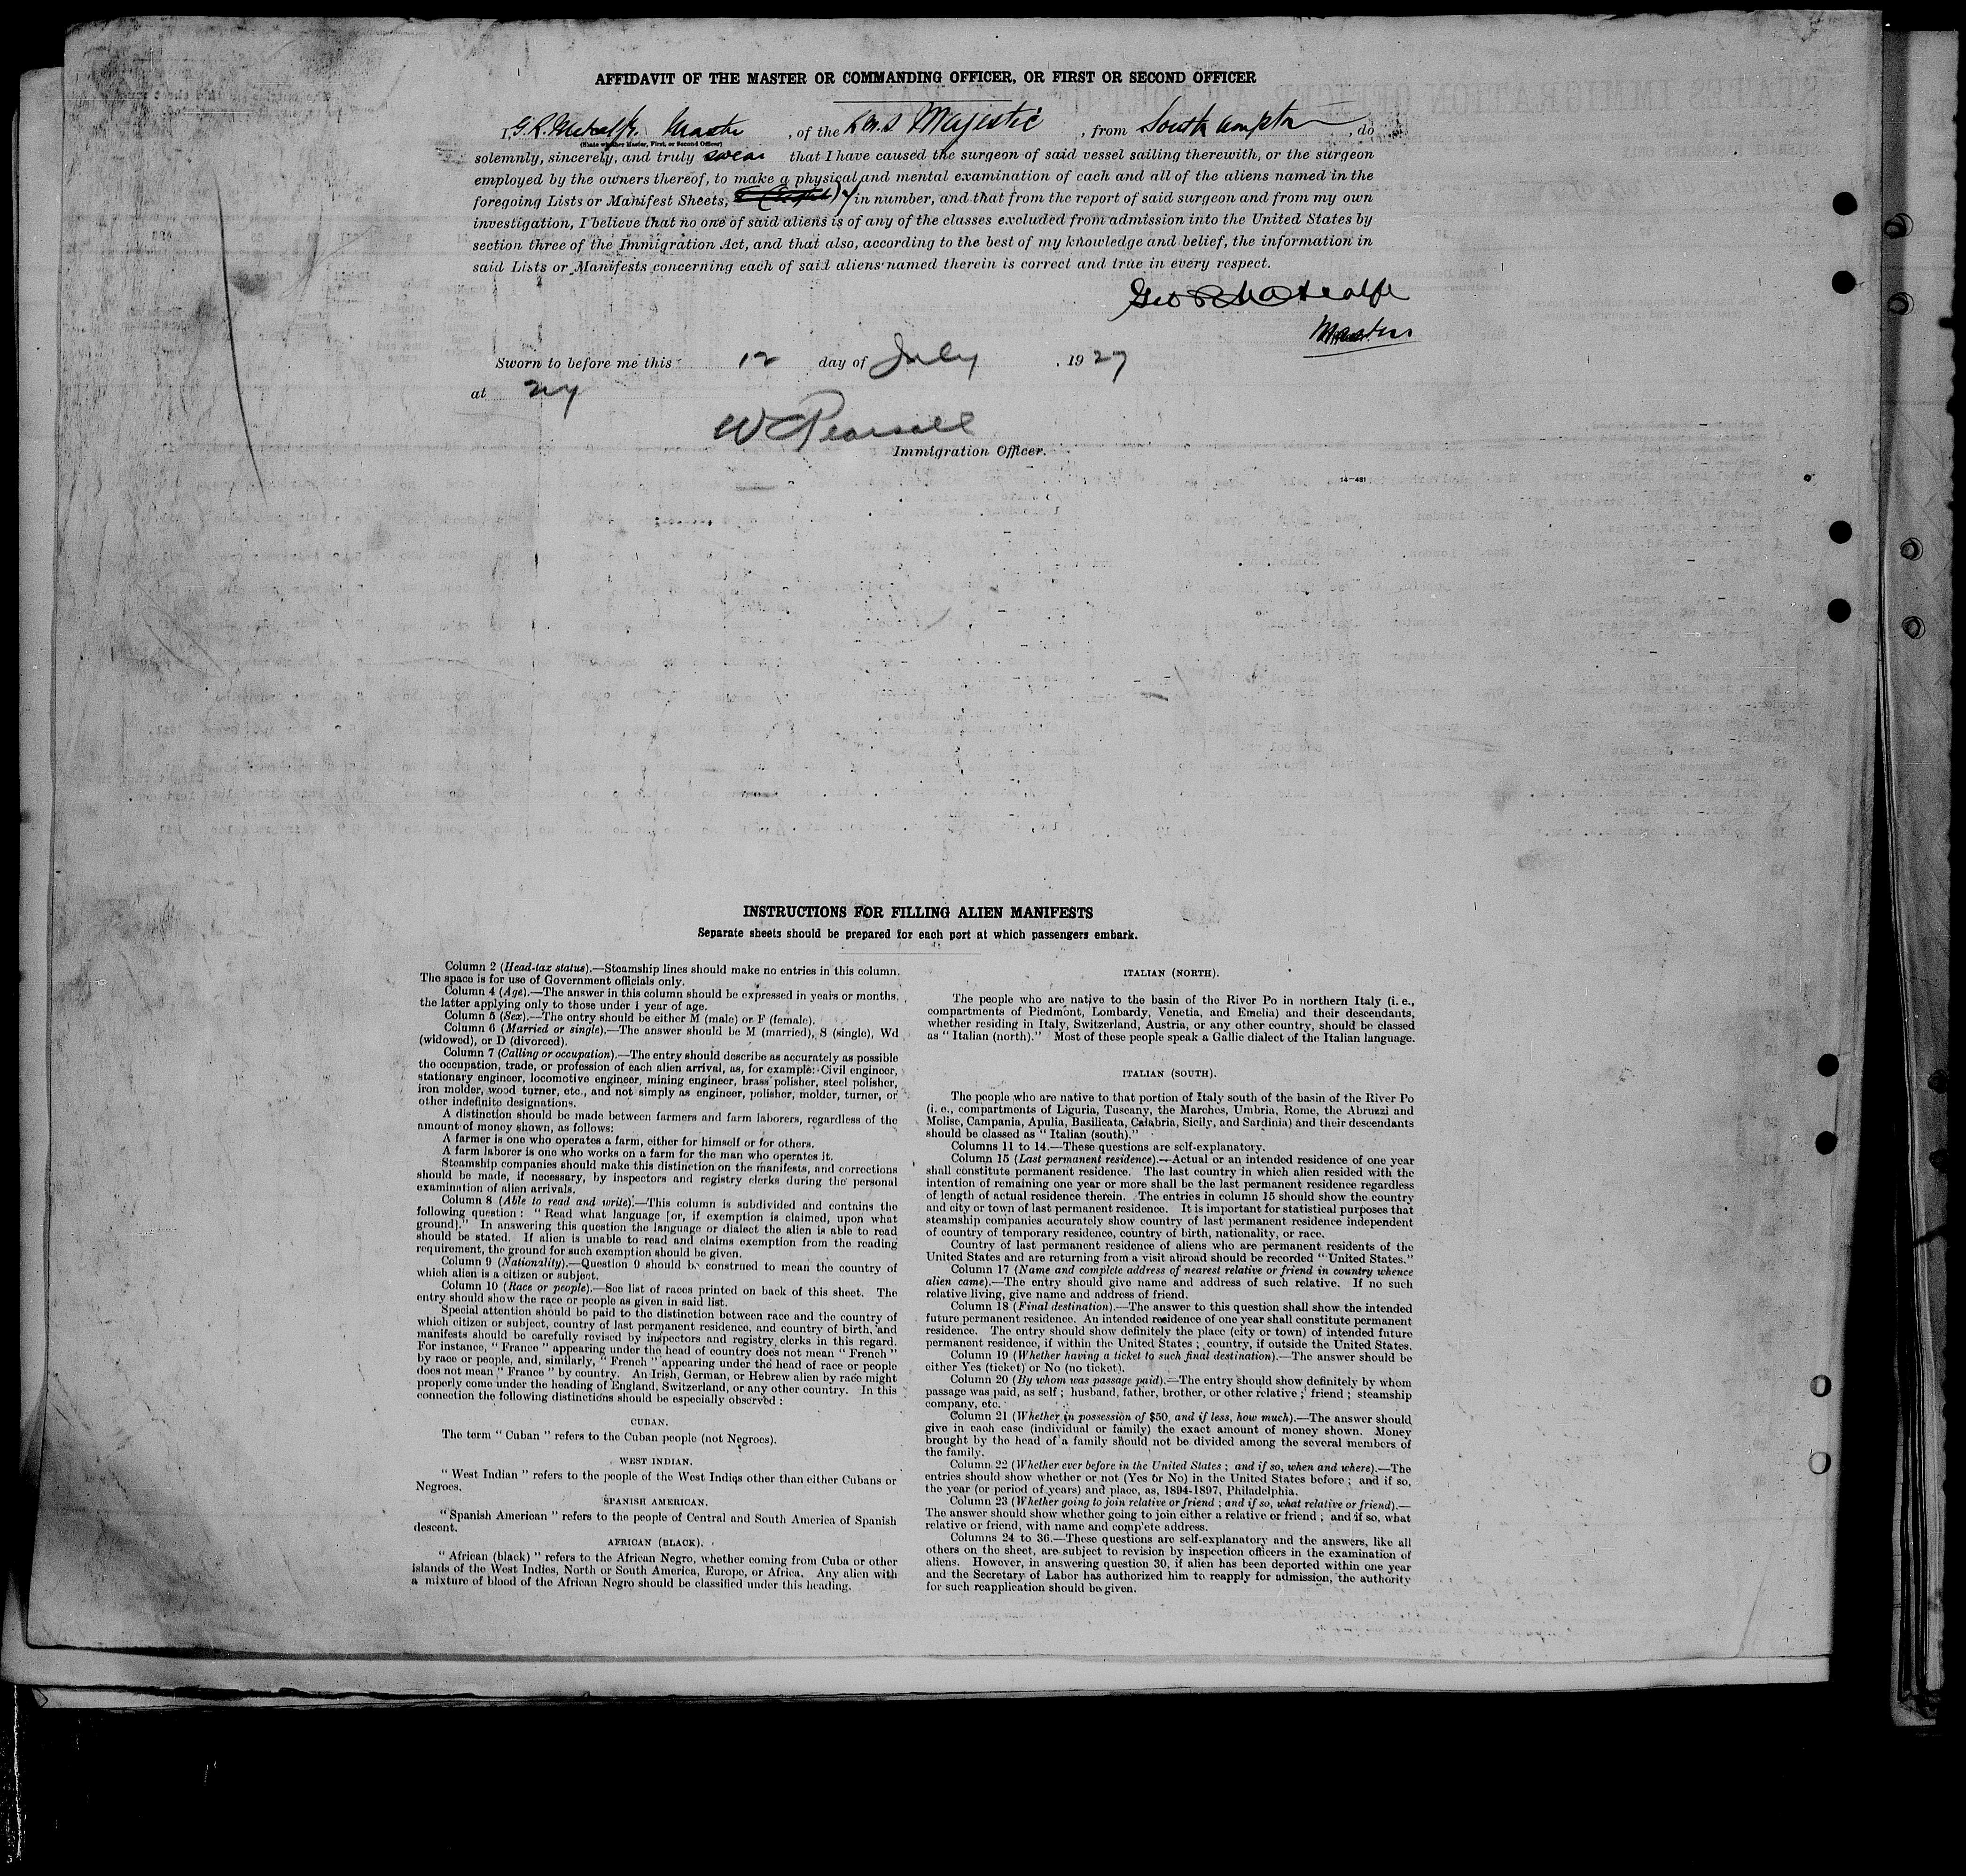 AFFIDAVIT OF THE MASTER OR COMMANDING OFFICER, OR FIRST OR SECOND OFFICER
I, G. R. Metcalfe. Master, of the R.M.S Majestic, from Southampton, do
(State whether Master, First, or Second Officer)
solemnly, sincerely, and truly swear that I have caused the surgeon of said vessel sailing therewith, or the surgeon
employed by the owners thereof, to make a physical and mental examination of each and all of the aliens named in the
foregoing Lists or Manifest Sheets, in number, and that from the report of said surgeon and from my own
investigation, I believe that no one of said aliens is of any of the classes excluded from admission into the United States by
section three of the Immigration Act, and that also, according to the best of my knowledge and belief, the information in
said Lists or Manifests concerning each of said aliens named therein is correct and true in every respect.
Geo R Metcalfe
Master
Sworn to before me this 12 day of July, 1927
at NY
W Pearsall
Immigration Officer.
14—481
INSTRUCTIONS FOR FILLING ALIEN MANIFESTS
Separate sheets should be prepared for each port at which passengers embark.
Column 2 (Head-tax status).—Steamship lines should make no entries in this column.
The space is for use of Government officials only.
Column 4 (Age).—The answer in this column should be expressed in years or months,
the latter applying only to those under 1 year of age.
Column 5 (Sex).—The entry should be either M (male) or F (female).
Column 6 (Married or single).—The answer should be M (married), S (single), Wd
(widowed), or D (divorced).
Column 7 (Calling or occupation).—The entry should describe as accurately as possible
the occupation, trade, or profession of each alien arrival, as, for example: Civil engineer,
stationary engineer, locomotive engineer, mining engineer, brass polisher, steel polisher,
iron molder, wood turner, etc., and not simply as engineer, polisher, molder, turner, or
other indefinite designations.
A distinction should be made between farmers and farm laborers, regardless of the
amount of money shown, as follows:
A farmer is one who operates a farm, either for himself or for others.
A farm laborer is one who works on a farm for the man who operates it.
Steamship companies should make this distinction on the manifests, and corrections
should be made, if necessary, by inspectors and registry clerks during the personal
examination of alien arrivals.
Column 8 (Able to read and write).—This column is subdivided and contains the
following question: "Read what language [or, if exemption is claimed, upon what
ground]." In answering this question the language or dialect the alien is able to read
should be stated. If alien is unable to read and claims exemption from the reading
requirement, the ground for such exemption should be given.
Column 9 (Nationality).—Question 9 should be construed to mean the country of
which alien is a citizen or subject.
Column 10 (Race or people).—See list of races printed on back of this sheet. The
entry should show the race or people as given in said list.
Special attention should be paid to the distinction between race and the country of
which citizen or subject, country of last permanent residence, and country of birth, and
manifests should be carefully revised by inspectors and registry clerks in this regard.
For instance, "France" appearing under the head of country does not mean "French"
by race or people, and, similarly, "French" appearing under the head of race or people
does not mean "France" by country. An Irish, German, or Hebrew alien by race might
properly come under the heading of England, Switzerland, or any other country. In this
connection the following distinctions should be especially observed:
CUBAN.
The term "Cuban" refers to the Cuban people (not Negroes).
WEST INDIAN.
"West Indian" refers to the people of the West Indies other than either Cubans or
Negroes.
SPANISH AMERICAN.
"Spanish American" refers to the people of Central and South America of Spanish
descent.
AFRICAN (BLACK).
"African (black)" refers to the African Negro, whether coming from Cuba or other
islands of the West Indies, North or South America, Europe, or Africa. Any alien with
a mixture of blood of the African Negro should be classified under this heading.
ITALIAN (NORTH).
The people who are native to the basin of the River Po in northern Italy (i. e.,
compartments of Piedmont, Lombardy, Venetia, and Emelia) and their descendants,
whether residing in Italy, Switzerland, Austria, or any other country, should be classed
as "Italian (north)." Most of these people speak a Gallic dialect of the Italian language.
ITALIAN (SOUTH).
The people who are native to that portion of Italy south of the basin of the River Po
(i. e., compartments of Liguria, Tuscany, the Marches, Umbria, Rome, the Abruzzi and
Molise, Campania, Apulia, Basilicata, Calabria, Sicily, and Sardinia) and their descendants
should be classed as "Italian (south)."
Columns 11 to 14.—These questions are self-explanatory.
Column 15 (Last permanent residence).—Actual or an intended residence of one year
shall constitute permanent residence. The last country in which alien resided with the
intention of remaining one year or more shall be the last permanent residence regardless
of length of actual residence therein. The entries in column 15 should show the country
and city or town of last permanent residence. It is important for statistical purposes that
steamship companies accurately show country of last permanent residence independent
of country of temporary residence, country of birth, nationality, or race.
Country of last permanent residence of aliens who are permanent residents of the
United States and are returning from a visit abroad should be recorded "United States."
Column 17 (Name and complete address of nearest relative or friend in country whence
alien came).—The entry should give name and address of such relative. If no such
relative living, give name and address of friend.
Column 18 (Final destination).—The answer to this question shall show the intended
future permanent residence. An intended residence of one year shall constitute permanent
residence. The entry should show definitely the place (city or town) of intended future
permanent residence, if within the United States; country, if outside the United States.
Column 19 (Whether having a ticket to such final destination).—The answer should be
either Yes (ticket) or No (no ticket).
Column 20 (By whom was passage paid).—The entry should show definitely by whom
passage was paid, as self; husband, father, brother, or other relative; friend; steamship
company, etc.
Column 21 (Whether in possession of $50, and if less, how much).—The answer should
give in each case (individual or family) the exact amount of money shown. Money
brought by the head of a family should not be divided among the several members of
the family.
Column 22 (Whether ever before in the United States; and if so, when and where).—The
entries should show whether or not (Yes or No) in the United States before; and if so,
the year (or period of years) and place, as, 1894-1897, Philadelphia.
Column 23 (Whether going to join relative or friend; and if so, what relative or friend).—
The answer should show whether going to join either a relative or friend; and if so, what
relative or friend, with name and complete address.
Columns 24 to 36.—These questions are self-explanatory and the answers, like all
others on the sheet, are subject to revision by inspection officers in the examination of
aliens. However, in answering question 30, if alien has been deported within one year
and the Secretary of Labor has authorized him to reapply for admission, the authority
for such reapplication should be given.